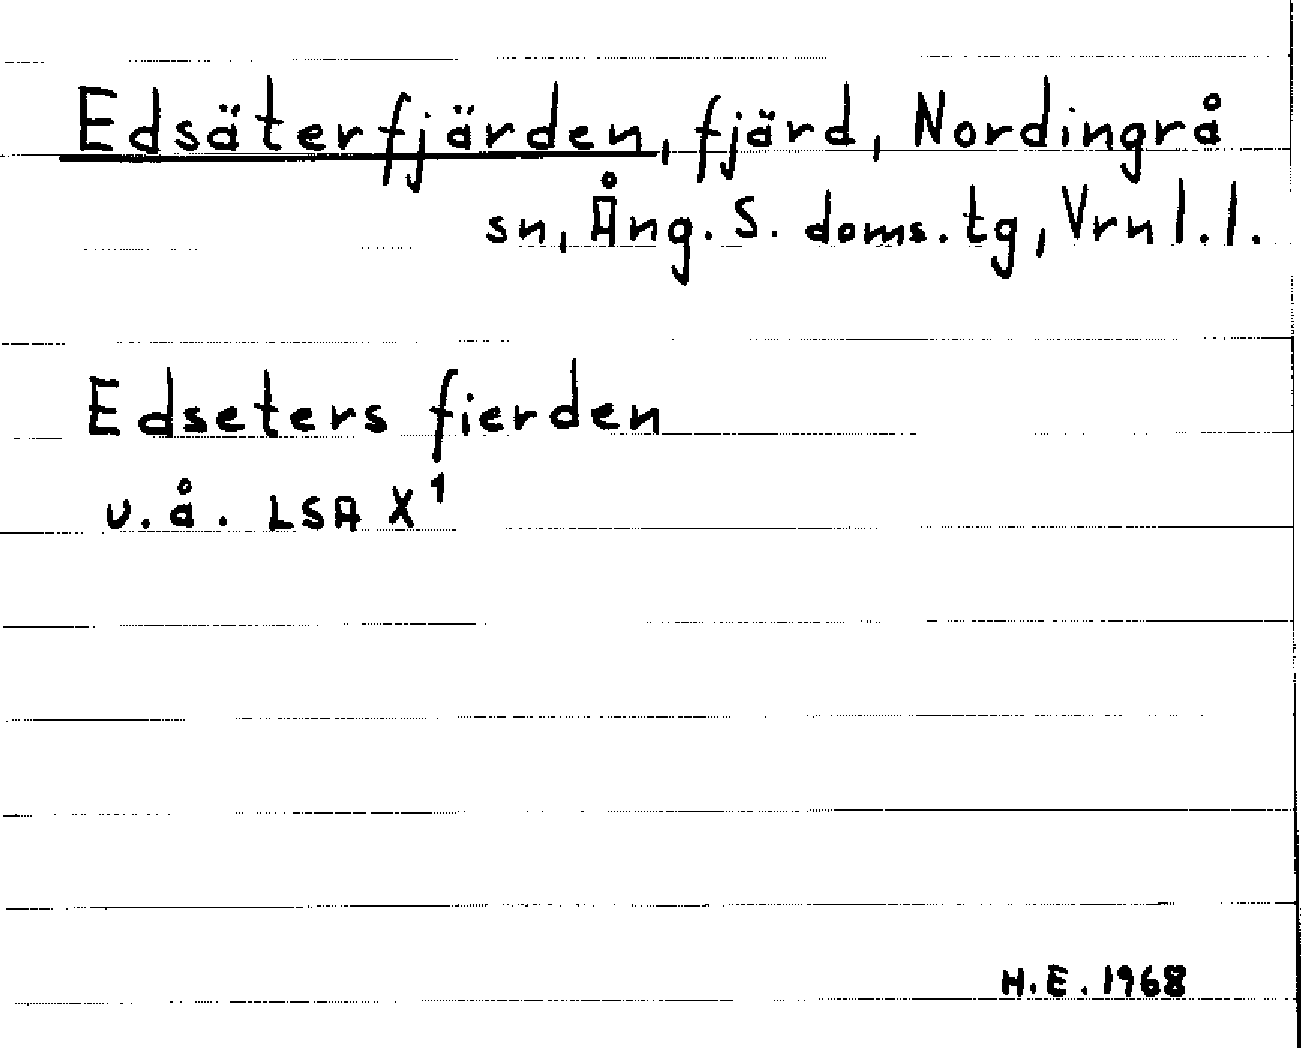 Edsäterfjärden, fjärd, Nordingrå
sn, Ång. S. doms. tg, Vrnl.l.
Edseters fierden
u.å. LSA X¹
H.E. 1968